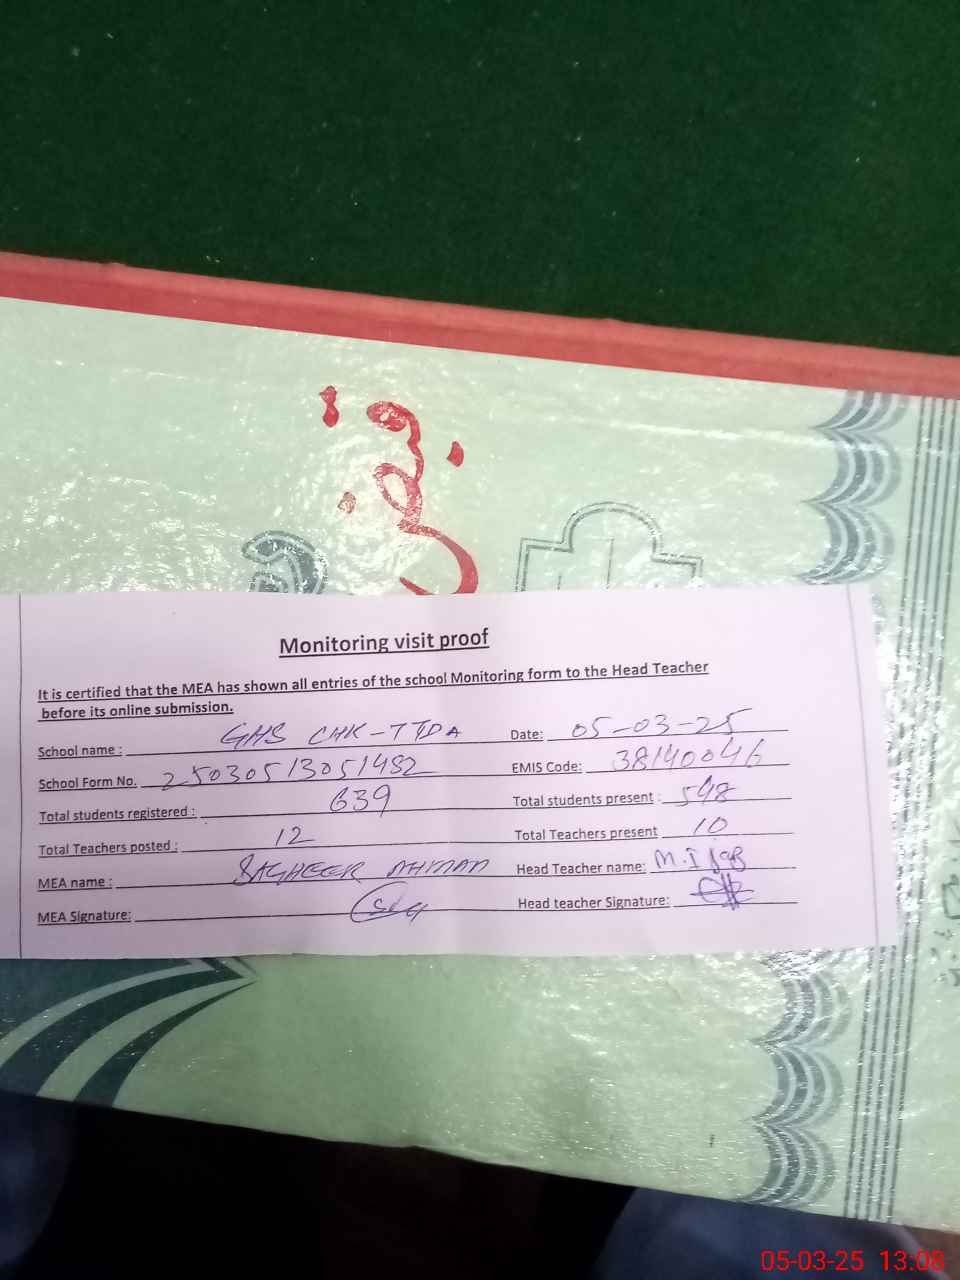 Monitoring visit proof
It is certified that the MEA has shown all entries of the school Monitoring form to the Head Teacher
before its online submission.
School name : GHS CHK-TTDA Date: 05-03-25
School Form No. 25030513051482 EMIS Code: 38140046
Total students registered : 639 Total students present : 548
Total Teachers posted : 12 Total Teachers present 10
MEA name : SAGHEER AHMAD Head Teacher name: M.I
MEA Signature: Head teacher Signature:
05-03-25 13:08